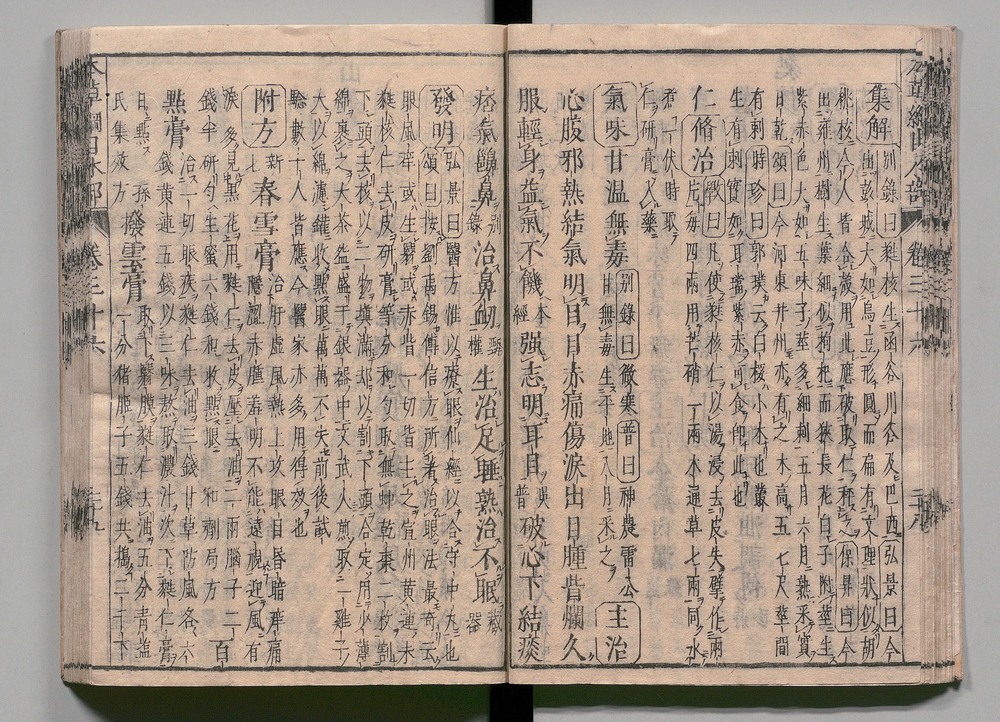 集解 別錄曰蕤核生函谷川谷及巴西弘景曰今
出彭城大如烏豆形圓而扁有文理狀似胡
桃核今人皆合殼用此應破取仁秤之保昇曰今
出雍州樹生葉細似枸杞而狹長花白子附莖生
紫赤色大如五味子莖多細刺五月六月熟采實
日乾頌曰今河東并州亦有之木高五七尺莖間
有刺時珍曰郭璞云白桵小木也叢
生有刺實如耳璫紫赤可食即此也
仁 脩治 斆曰凡使蕤核仁以湯浸去皮尖擘作兩
片每四兩用芒硝一兩木通草七兩同水
煮一伏時取
仁研膏入藥
氣味 甘溫無毒 別錄曰微寒普曰神農雷公
甘無毒生平地八月采之 主治
心腹邪熱結氣明目目赤痛傷淚出目腫眥爛久
服輕身益氣不饑 本經 強志明耳目 吳普 破心下結痰
痞氣齆鼻 別錄 治鼻衄 甄權 生治足睡熟治不眠 藏器
發明 弘景曰醫方惟以療眼仙經以合守中丸也
頌曰按劉禹錫傳信方所著治眼法最奇云
眼風痒或生翳或赤眥一切皆主之宣州黃連末
蕤核仁去皮研膏等分和勻取無蟲乾棗二枚割
下頭去核以二物填滿却以割下頭合定用少薄
綿裹之大茶盌盛于銀器中文武火煎取一雞子
大以綿濾罐收點眼萬萬不失前後試
驗數十人皆應今醫家亦多用得效也
附方 新七 春雪膏 治肝虛風熱上攻眼目昏暗痒痛
隱澀赤腫羞明不能遠視迎風有
淚多見黑花用蕤仁去皮壓去油二兩腦子二
錢半研勻生蜜六錢和收點眼 和劑局方 百
點膏 治一切眼疾蕤仁去油三錢甘草防風各六
錢黃連五錢以三味熬取濃汁次下蕤仁膏
日點 孫氏集效方 撥雲膏 取下翳膜蕤仁去油五分青鹽
一分猪胰子五錢共搗二千下
本草綱目木部 卷三十六